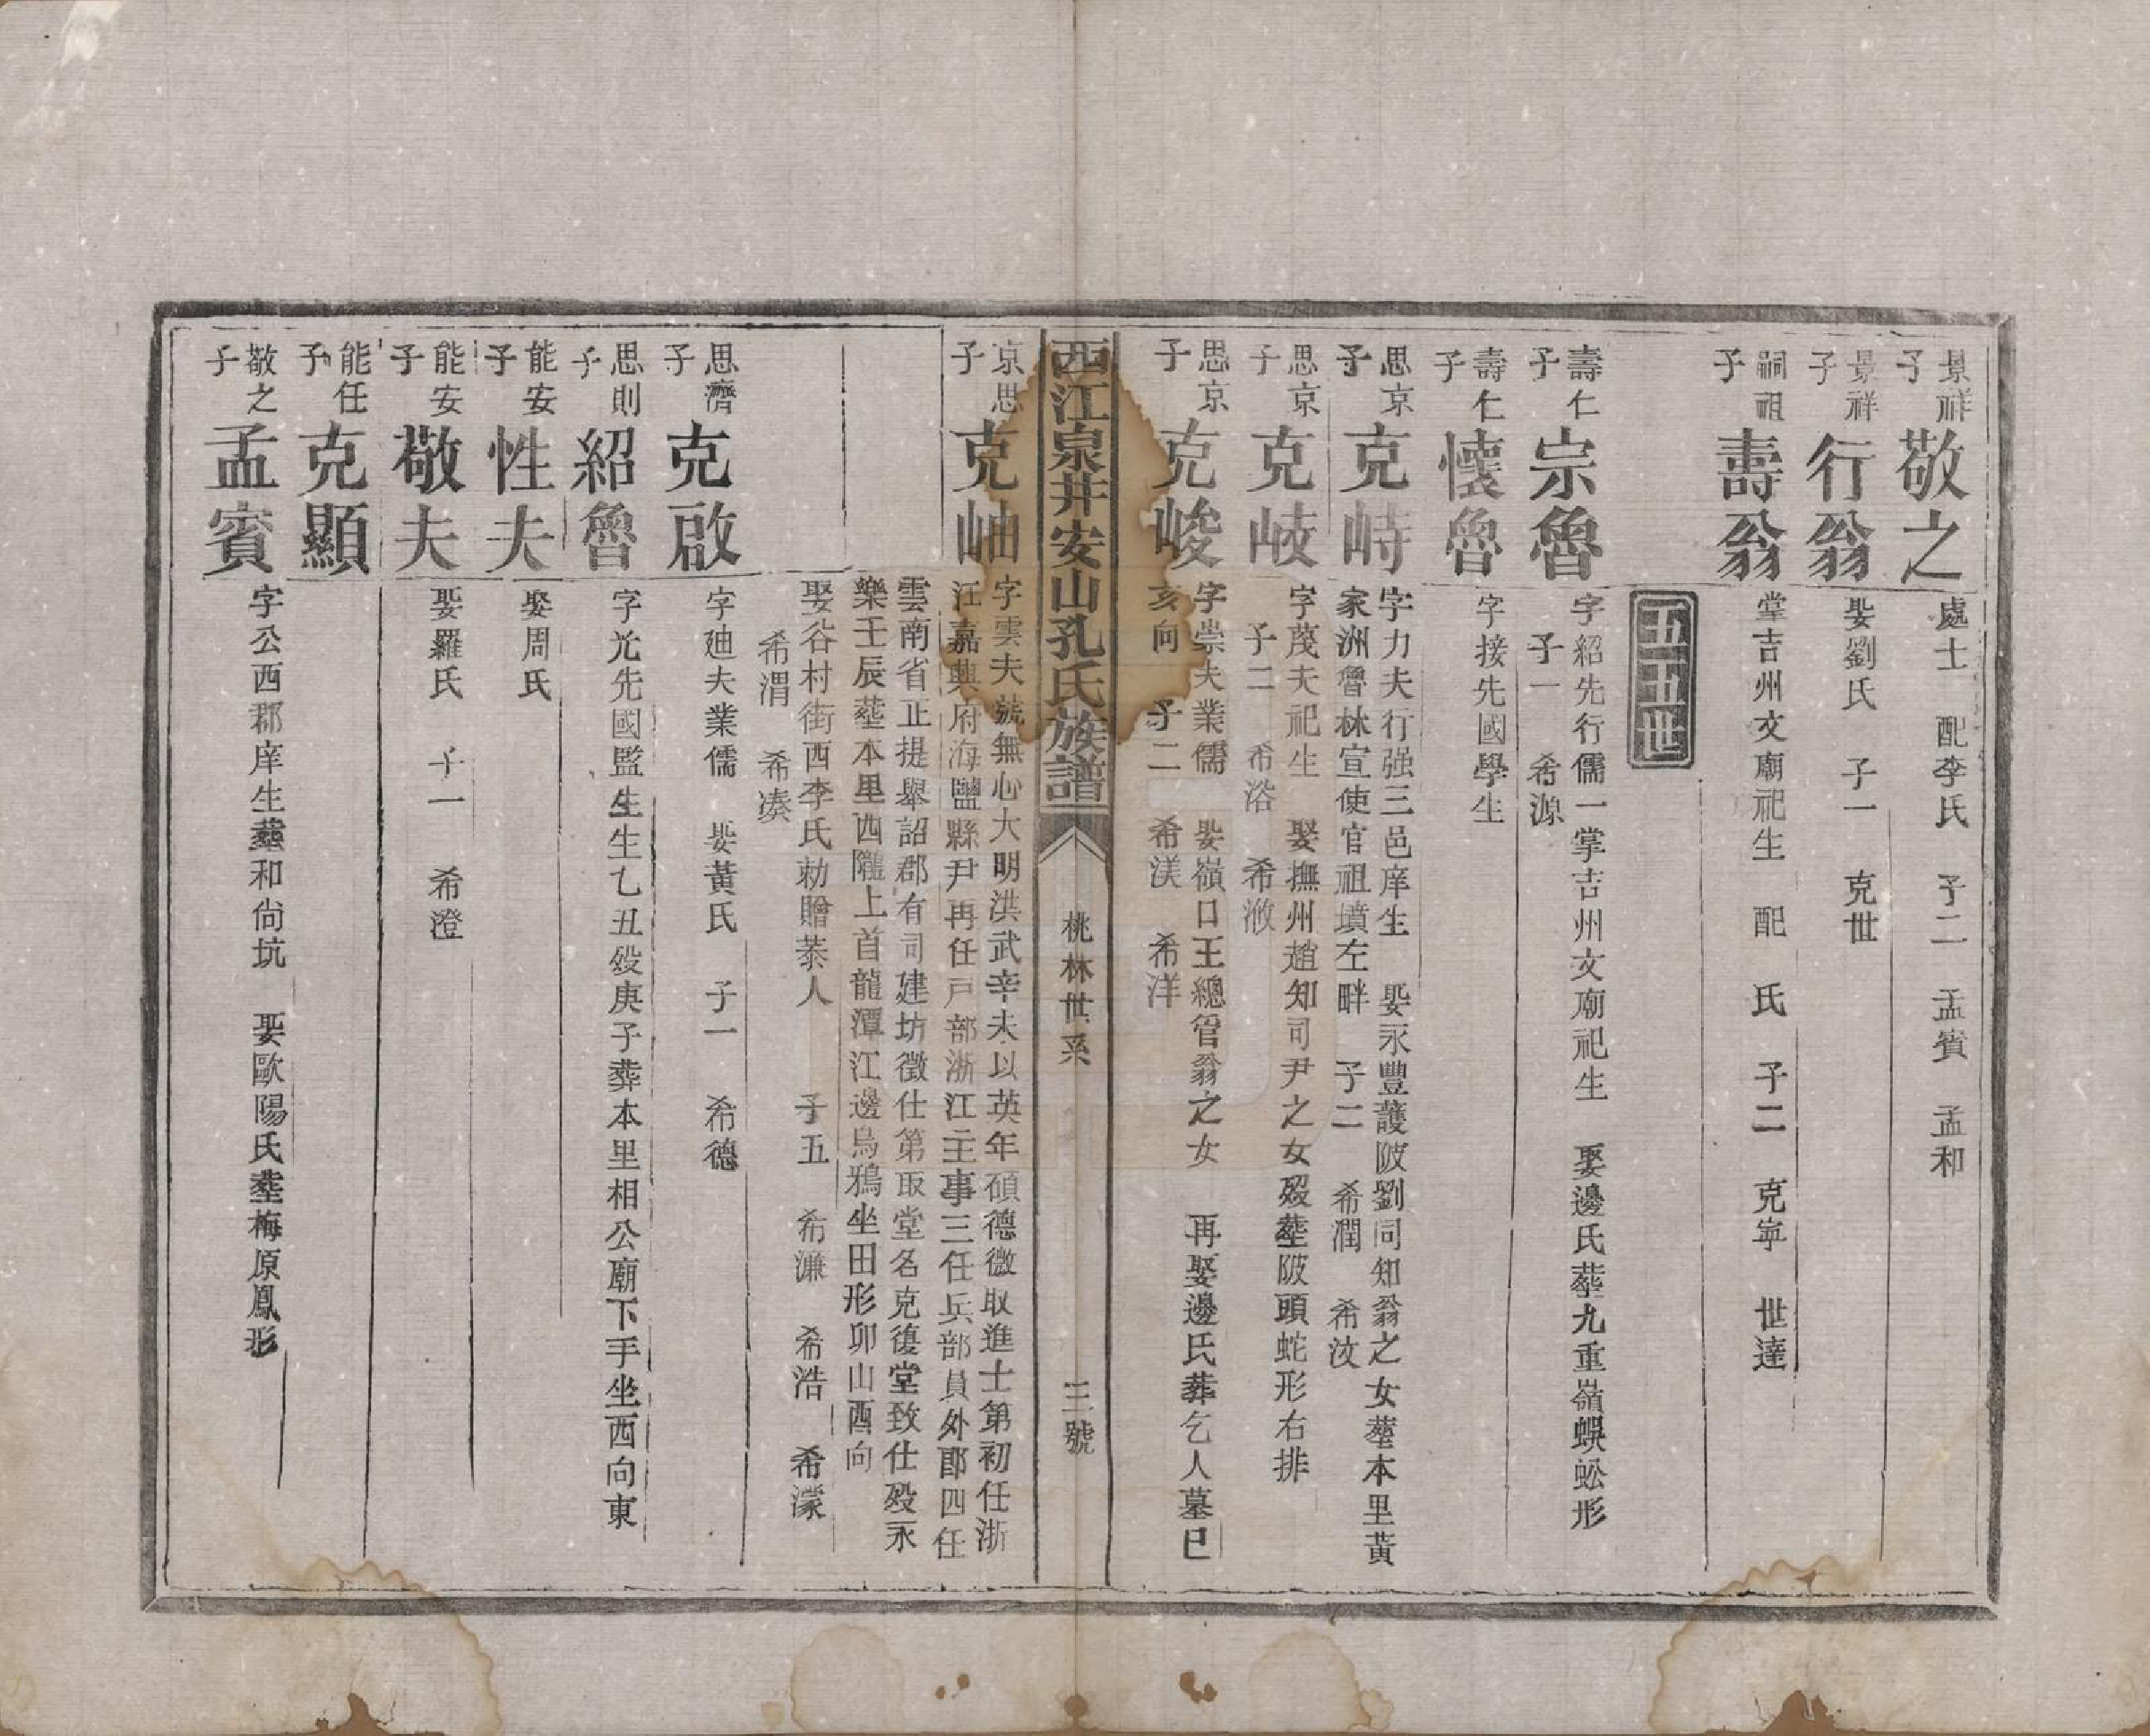 景祥子 敬之
處士 配李氏 子二 孟賓 孟和
景祥子 行翁
娶劉氏 子一 克世
嗣祖子 壽翁
掌吉州文廟祀生 配 氏 子二 克寧 世達
五五世
壽仁子 宗魯
字紹先行儒一掌吉州文廟祀生 娶邊氏葬九重嶺蜈蚣形
子一 希源
壽仁子 懷魯
字接先國學生
思京子 克峙
字力夫行强三邑庠生 娶永豐護陂劉同知翁之女塟本里黃
家洲魯林宣使官祖墳左畔 子二 希潤 希汶
思京子 克岐
字茂夫祀生 娶撫州趙知司尹之女殁塟陂頭蛇形右排
子二 希浴 希滺
思京子 克峻
字崇夫業儒 娶嶺口王總管翁之女 再娶邊氏葬乞人墓巳
亥向 子二 希渼 希洋
西江泉井安山孔氏族譜
桃林世系
三號
京思子 克岫
字雲夫號無心大明洪武辛未以英年碩德徵取進士第初任浙
江嘉興府海鹽縣尹再任戸部浙江主事三任兵部員外郎四任
雲南省正提舉詔郡有司建坊徵仕第取堂名克復堂致仕殁永
樂壬辰塟本里西隴上首龍潭江邊烏鴉坐田形卯山酉向
娶谷村街西李氏勅贈恭人 子五 希濂 希浩 希濛
希渭 希湊
思濟子 克啟
字廸夫業儒 娶黃氏 子一 希德
思則子 紹魯
字光先國監生生乙丑殁庚子葬本里相公廟下手坐西向東
能安子 性夫
娶周氏
能安子 敬夫
娶羅氏 子一 希澄
能任子 克顯
敬之子 孟賓
字公西郡庠生塟和尙坑 娶歐陽氏塟梅原鳳形